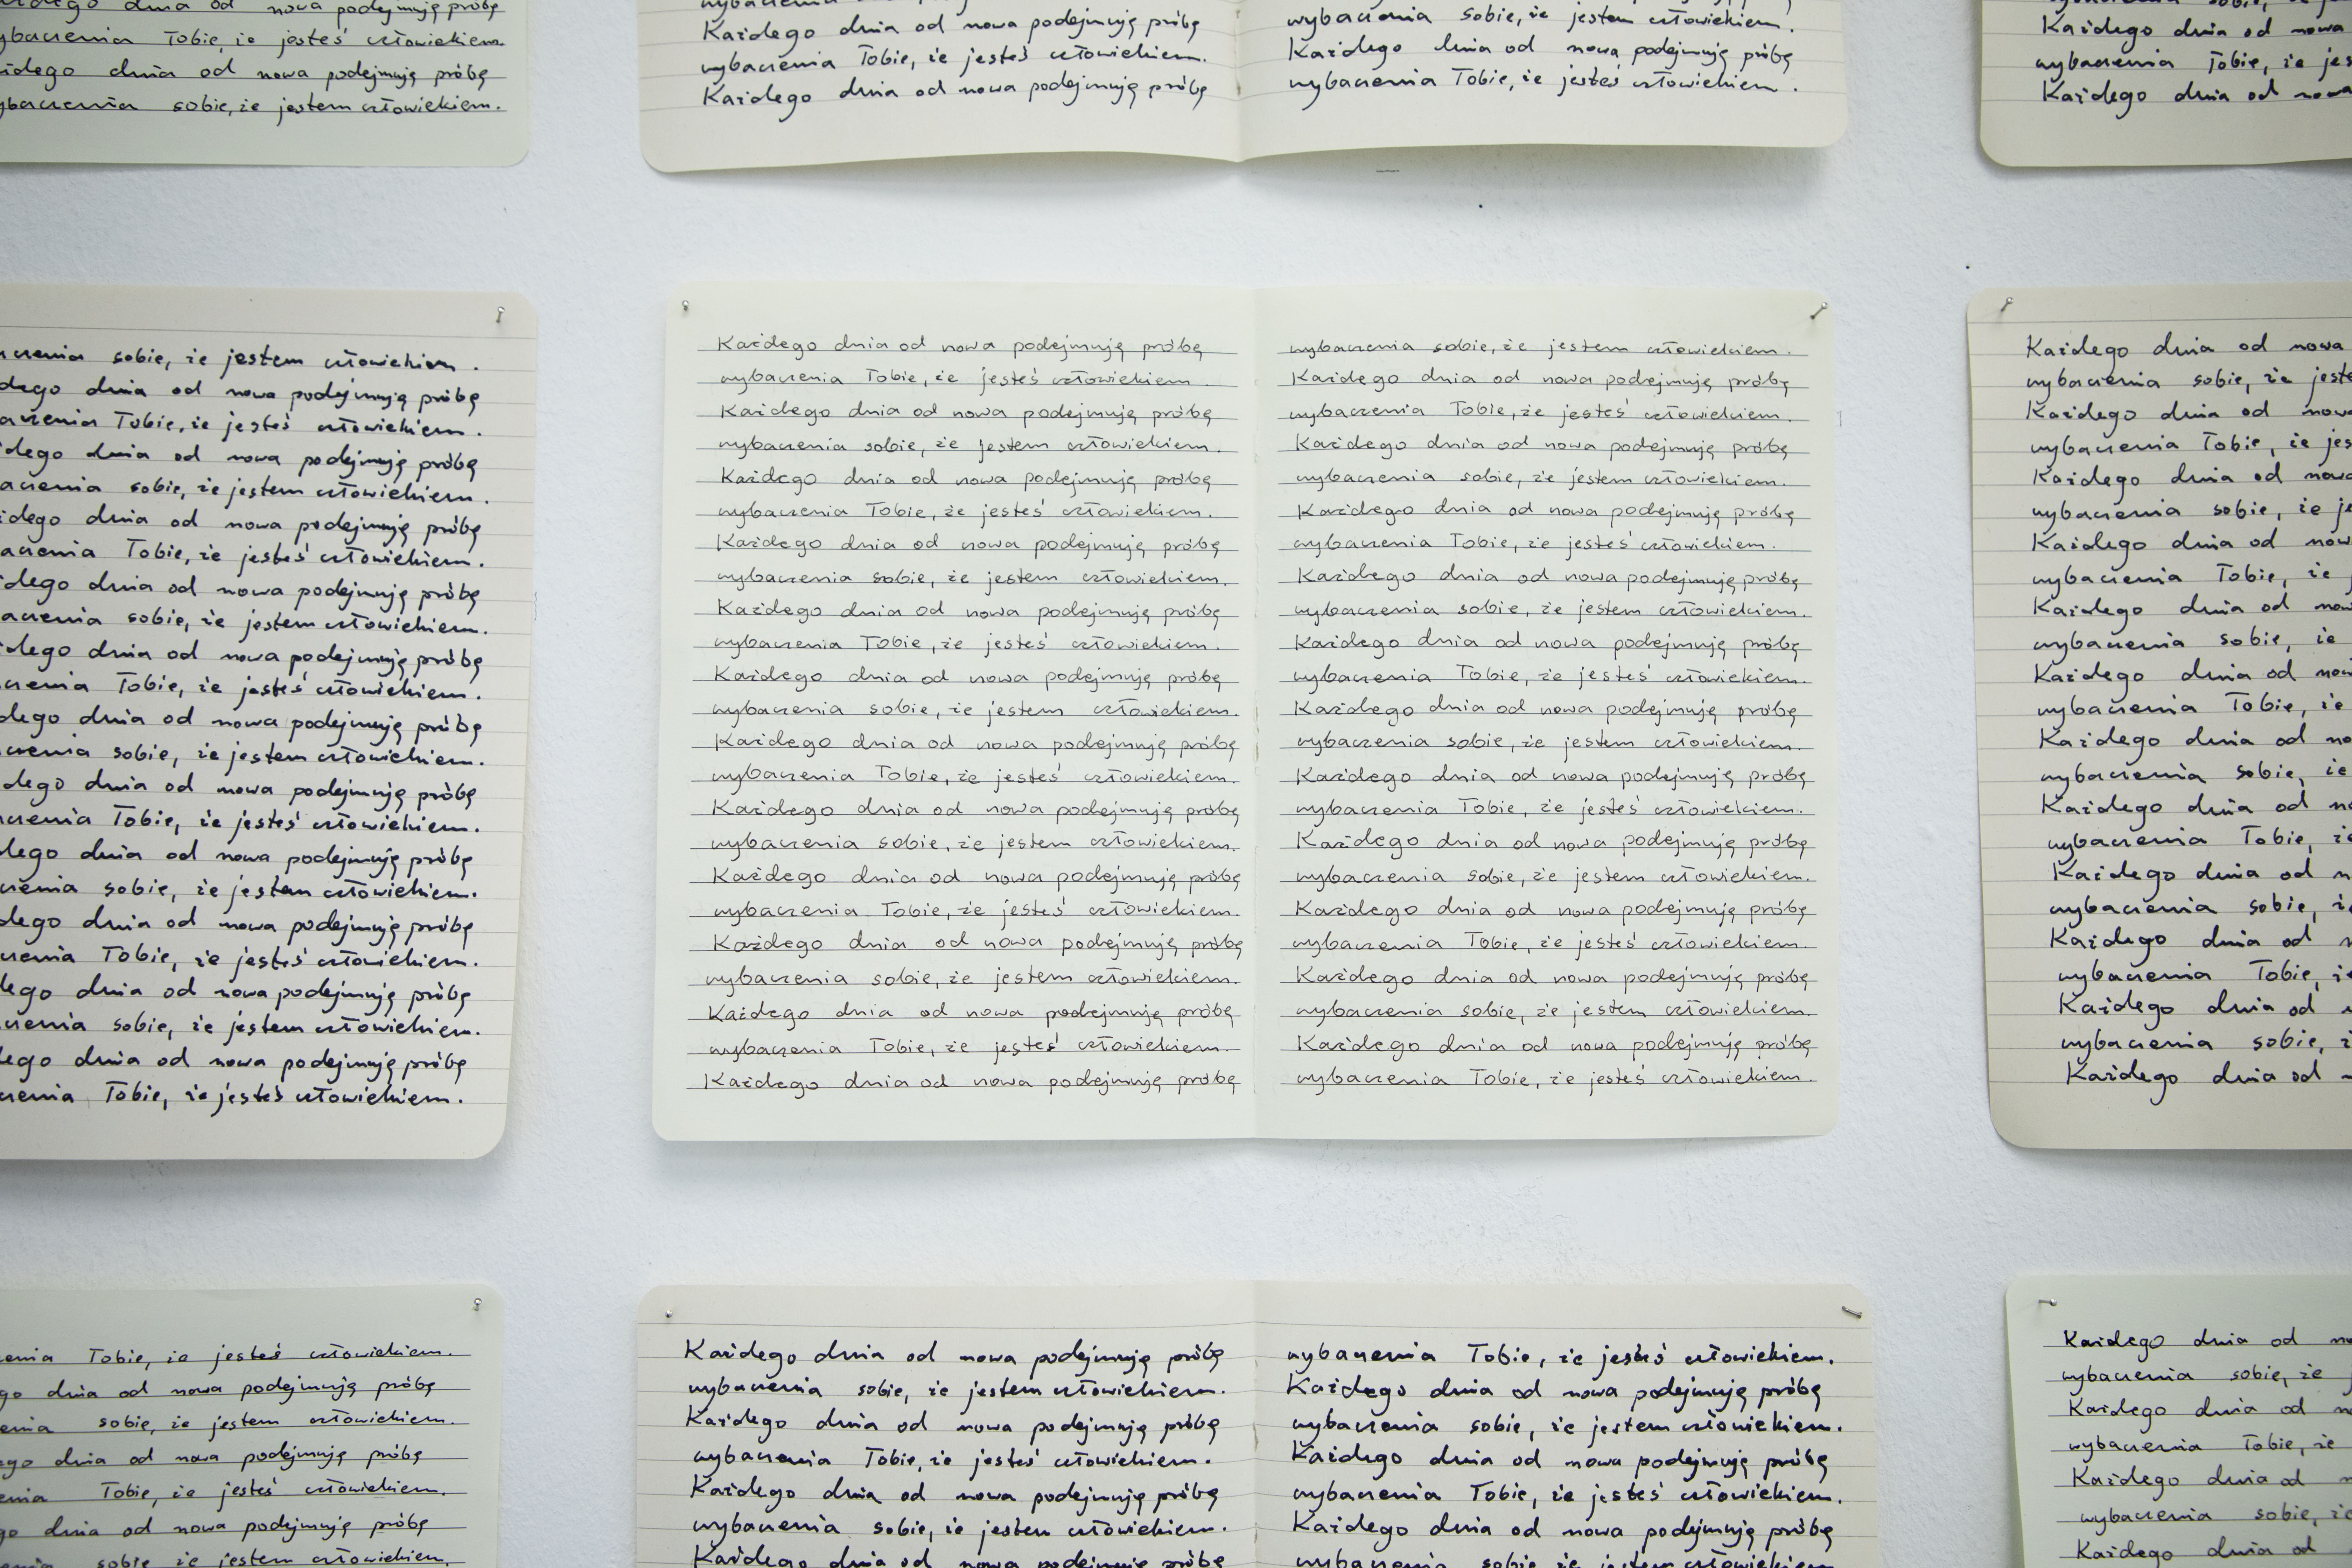 dnia od nowa podejmuję próbę
Tobie, że jesteś człowiekiem.
dnia od nowa podejmuję próbę
sobie, że jestem człowiekiem.
wybaczenia
Każdego dnia od nowa podejmuję próbę
wybaczenia Tobie, że jesteś człowiekiem.
Każdego dnia od nowa podejmuję próbę
wybaczenia sobie, że jestem człowiekiem.
Każdego dnia od nowa podejmuję próbę
wybaczenia Tobie, że jesteś człowiekiem.
Każdego dnia od nowa
wybaczenia Tobie, że
Każdego dnia od nowa
sobie, że jestem człowiekiem.
dnia od nowa podejmuję próbę
Tobie, że jesteś człowiekiem.
dnia od nowa podejmuję próbę
sobie, że jestem człowiekiem.
dnia od nowa podejmuję próbę
Tobie, że jesteś człowiekiem.
dnia od nowa podejmuję próbę
sobie, że jestem człowiekiem.
dnia od nowa podejmuję próbę
Tobie, że jesteś człowiekiem.
dnia od nowa podejmuję próbę
sobie, że jestem człowiekiem.
dnia od nowa podejmuję próbę
Tobie, że jesteś człowiekiem.
dnia od nowa podejmuję próbę
sobie, że jestem człowiekiem.
dnia od nowa podejmuję próbę
Tobie, że jesteś człowiekiem.
dnia od nowa podejmuję próbę
sobie, że jestem człowiekiem.
dnia od nowa podejmuję próbę
Tobie, że jesteś człowiekiem.
Każdego dnia od nowa podejmuję próbę
wybaczenia Tobie, że jesteś człowiekiem.
Każdego dnia od nowa podejmuję próbę
wybaczenia sobie, że jestem człowiekiem.
Każdego dnia od nowa podejmuję próbę
wybaczenia Tobie, że jesteś człowiekiem.
Każdego dnia od nowa podejmuję próbę
wybaczenia sobie, że jestem człowiekiem.
Każdego dnia od nowa podejmuję próbę
wybaczenia Tobie, że jesteś człowiekiem.
Każdego dnia od nowa podejmuję próbę
wybaczenia sobie, że jestem człowiekiem.
Każdego dnia od nowa podejmuję próbę
wybaczenia Tobie, że jesteś człowiekiem.
Każdego dnia od nowa podejmuję próbę
wybaczenia sobie, że jestem człowiekiem.
Każdego dnia od nowa podejmuję próbę
wybaczenia Tobie, że jesteś człowiekiem.
Każdego dnia od nowa podejmuję próbę
wybaczenia sobie, że jestem człowiekiem.
Każdego dnia od nowa podejmuję próbę
wybaczenia Tobie, że jesteś człowiekiem.
Każdego dnia od nowa podejmuję próbę
wybaczenia sobie, że jestem człowiekiem.
Każdego dnia od nowa podejmuję próbę
wybaczenia Tobie, że jesteś człowiekiem.
Każdego dnia od nowa podejmuję próbę
wybaczenia sobie, że jestem człowiekiem.
Każdego dnia od nowa podejmuję próbę
wybaczenia Tobie, że jesteś człowiekiem.
Każdego dnia od nowa podejmuję próbę
wybaczenia sobie, że jestem człowiekiem.
Każdego dnia od nowa podejmuję próbę
wybaczenia Tobie, że jesteś człowiekiem.
Każdego dnia od nowa podejmuję próbę
wybaczenia sobie, że jestem człowiekiem.
Każdego dnia od nowa podejmuję próbę
wybaczenia Tobie, że jesteś człowiekiem.
Każdego dnia od nowa podejmuję próbę
wybaczenia sobie, że jestem człowiekiem.
Każdego dnia od nowa podejmuję próbę
wybaczenia Tobie, że jesteś człowiekiem.
Każdego dnia od nowa podejmuję próbę
wybaczenia sobie, że jestem człowiekiem.
Każdego dnia od nowa podejmuję próbę
wybaczenia Tobie, że jesteś człowiekiem.
Każdego dnia od nowa
wybaczenia sobie, że
Każdego dnia od
wybaczenia Tobie, że
Każdego dnia od
wybaczenia sobie, że
Każdego dnia od
wybaczenia Tobie, że
Każdego dnia od
wybaczenia sobie, że
Każdego dnia od
wybaczenia Tobie, że
Każdego dnia od
wybaczenia sobie, że
Każdego dnia od
wybaczenia Tobie,
Każdego dnia od
wybaczenia sobie,
Każdego dnia od
wybaczenia Tobie,
Każdego dnia od
wybaczenia sobie,
Każdego dnia od
Tobie, że jesteś człowiekiem.
dnia od nowa podejmuję próbę
sobie, że jestem człowiekiem.
dnia od nowa podejmuję próbę
Tobie, że jesteś człowiekiem.
dnia od nowa podejmuję próbę
sobie że jestem człowiekiem.
Każdego dnia od nowa podejmuję próbę
wybaczenia sobie, że jestem człowiekiem.
Każdego dnia od nowa podejmuję próbę
wybaczenia Tobie, że jesteś człowiekiem.
Każdego dnia od nowa podejmuję próbę
wybaczenia sobie, że jestem człowiekiem.
Każdego dnia od nowa podejmuję próbę
wybaczenia Tobie, że jesteś człowiekiem.
Każdego dnia od nowa podejmuję próbę
wybaczenia sobie, że jestem człowiekiem.
Każdego dnia od nowa podejmuję próbę
wybaczenia Tobie, że jesteś człowiekiem.
Każdego dnia od nowa podejmuję próbę
wybaczenia sobie, że jestem człowiekiem.
Każdego dnia od
wybaczenia sobie, że
Każdego dnia od
wybaczenia Tobie, że
Każdego dnia od
wybaczenia sobie,
Każdego dnia od